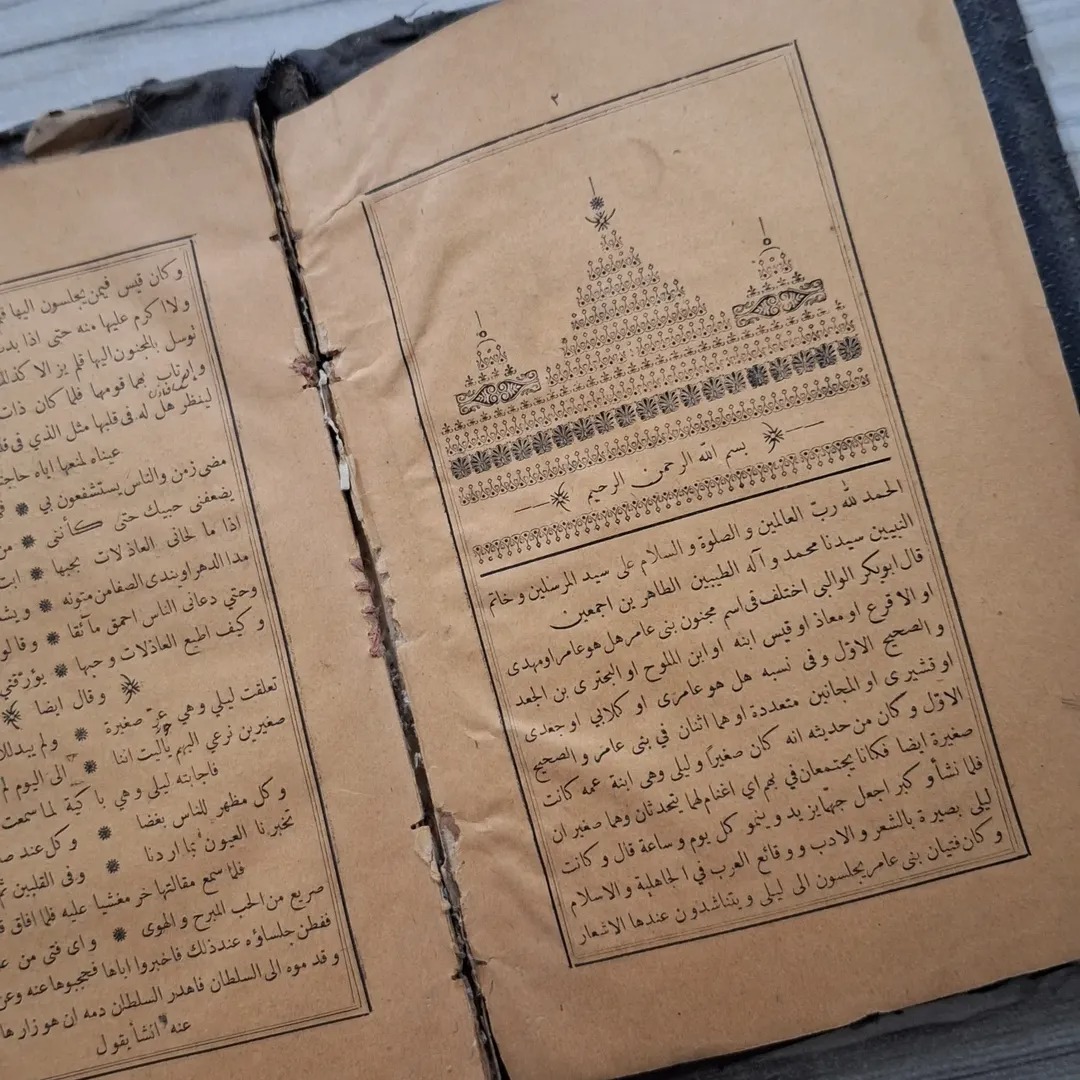 ٢
بسم الله الرحمن الرحيم
الحمد لله ربّ العالمين و الصلوة و السلام على سيد المرسلين و خاتم
النبيين سيدنا محمد و آله الطيبين الطاهرين اجمعين
قال ابوبكر الوالبى اختلف فى اسم مجنون بنى عامر هل هو عامر او مهدى
او الاقرع او معاذ او قيس ابنه او ابن الملوح او البحترى بن الجعد
و الصحيح الاوّل و فى نسبه هل هو عامرى او كلابي او جعدى
او قشيرى او المجانين متعددة او هما اثنان فى بنى عامر و الصحيح
الاوّل و كان من حديثه انه كان صغيراً و ليلى وهى ابنة عمه كانت
صغيرة ايضا فكانا يجتمعان في بهم اي اغنام لهما يتحدثان وهما صغيران
فلما نشأ و كبر اجعل جهما يزيد و ينمو كل يوم و ساعة قال و كانت
ليلى بصيرة بالشعر و الادب و وقائع العرب في الجاهلية و الاسلام
و كان فتيان بنى عامر يجلسون الى ليلى و يتناشدون عندها الاشعار
و كان قيس فيمن يجلسون اليها
ولا اكرم عليها منه حتى اذا
توسل بالمجنون اليها فلم يزالا
وارتاب بهما قومها فلما كان ذات
لينظر هل له فى قلبها مثل الذي فى
عيناه لمنعها اياه
مضى زمن والناس يستشفعون بي ❋
يضعفنى حبيك حتى كأننى ❋ من
اذا ما لحانى العاذلات بحبها ❋
مدا الدهر او يندى الصفا من متونه ❋
وحتي دعانى الناس احمق مآئقا ❋ و قالوا
و كيف اطيع العاذلات و حبها ❋ يؤرّقني
❋ و قال ايضا ❋
تعلقت ليلي وهي غرّ صغيرة ❋ ولم
صغيرين نرعي البهم ياليت اننا ❋ الى اليوم لم
فاجابته ليلي وهي باكية لما سمعت
و كل مظهر للناس بغضا ❋ و كل عند
تخبرنا العيون بما اردنا ❋ وفى القلبين
فلما سمع مقالتها خر مغشيا عليه فلما افاق
صريع من الحب المبرح و الهوى ❋ و اى فتى من
ففطن جلساؤه عند ذلك فاخبروا اباها فحجبوها عنه
و قدموه الى السلطان فاهدر السلطان دمه ان هو زارها
عنه انشأ يقول